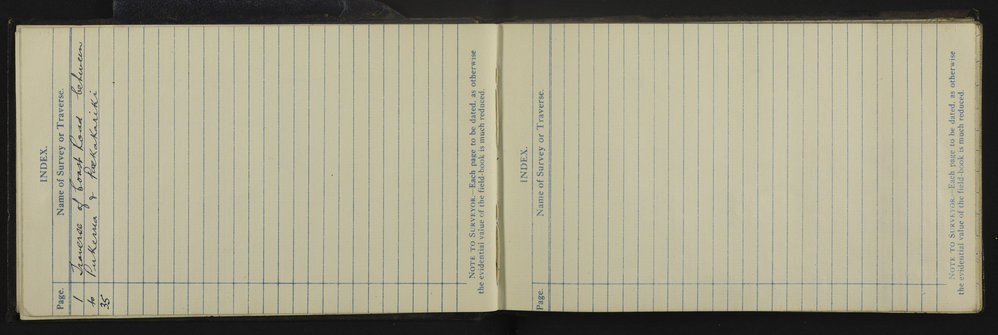 INDEX.
Page. Name of Survey or Traverse.
1 Traverse of Coast Road between
to Pukerua & Paekakariki
35
NOTE TO SURVEYOR.—Each page to be dated, as otherwise
the evidential value of the field-book is much reduced.
INDEX.
Page. Name of Survey or Traverse.
NOTE TO SURVEYOR.—Each page to be dated, as otherwise
the evidential value of the field-book is much reduced.